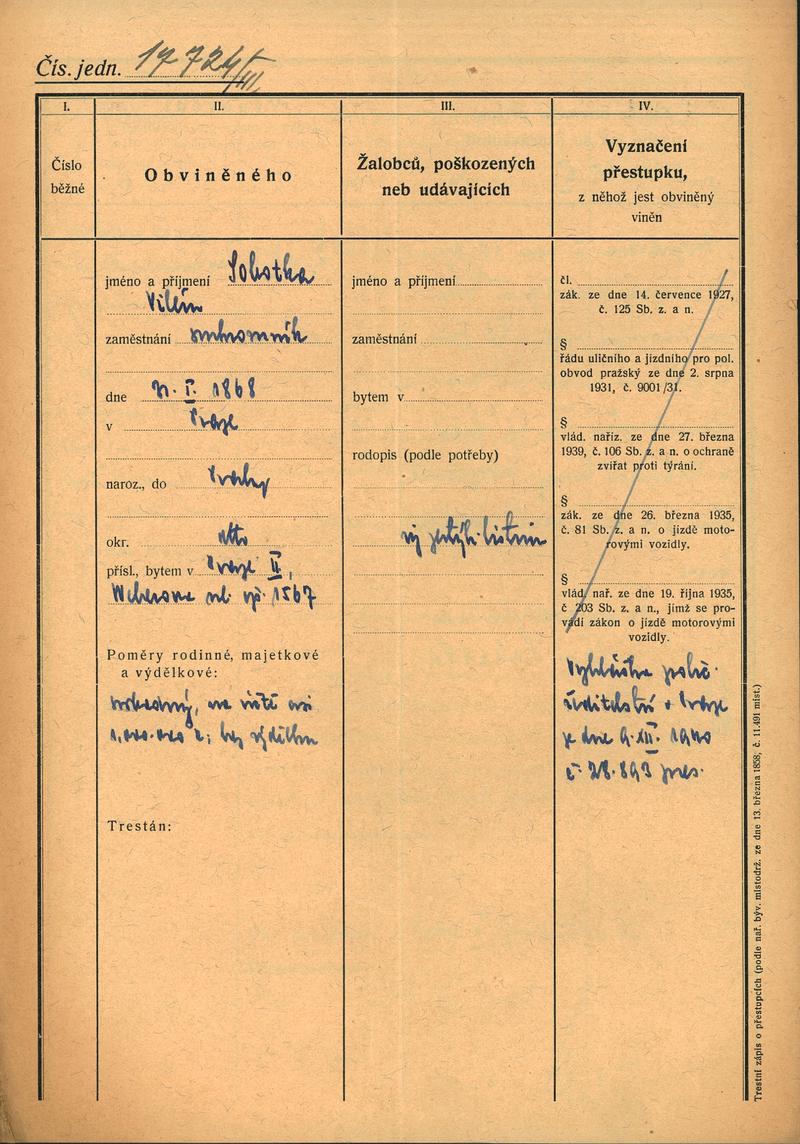 Čís. jedn. 17724/
I.
II.
III.
IV.
Číslo
běžné
Obviněného
Žalobců, poškozených
neb udávajících
Vyznačení
přestupku,
z něhož jest obviněný
viněn
jméno a příjmení Sobotka
Vilém
zaměstnání
dne I. 1868
v Praze
naroz., do Prahy
okr. dtto
přísl., bytem v Praze II,
Weberova ul. čp. 1567
Poměry rodinné, majetkové
a výdělkové:
bez výdělku
Trestán:
jméno a příjmení
zaměstnání
bytem v
rodopis (podle potřeby)
viz listin
čl.
zák. ze dne 14. července 1927,
č. 125 Sb. z. a n.
§
řádu uličního a jízdního pro pol.
obvod pražský ze dne 2. srpna
1931, č. 9001/31.
§
vlád. naříz. ze dne 27. března
1939, č. 106 Sb. z. a n. o ochraně
zvířat proti týrání.
§
zák. ze dne 26. března 1935,
č. 81 Sb. z. a n. o jízdě moto-
rovými vozidly.
§
vlád. nař. ze dne 19. října 1935,
č 203 Sb. z. a n., jímž se pro-
vádí zákon o jízdě motorovými
vozidly.
Vyhláška polic.
ředitelství v Praze
ze dne 9. XII. 1940
č. pres.
Trestní zápis o přestupcích (podle nař. býv. místodrž. ze dne 13. března 1858, č. 11.491 míst.)